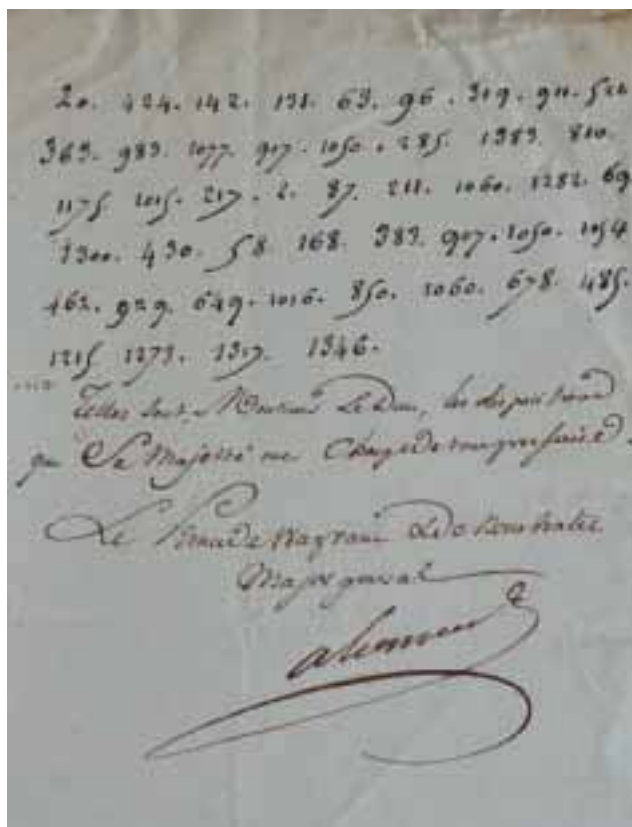 20. 424. 142. 131. 63. 96. 319. 911. 522
363. 983. 1077. 907. 1050. 285. 1383. 810.
1175. 1015. 217. 2. 87. 211. 1060. 1282. 69
1300. 430. 58. 168. 383. 907. 1050. 1054
462. 929. 649. 1016. 850. 1060. 678. 485.
1215. 1273. 1317. 1346.
Telles sont, Monsieur Le Duc, les dispositions
que Sa Majesté me Charge de vous prescrire.
Le Prince de Wagram et de Neuchatel
Major général